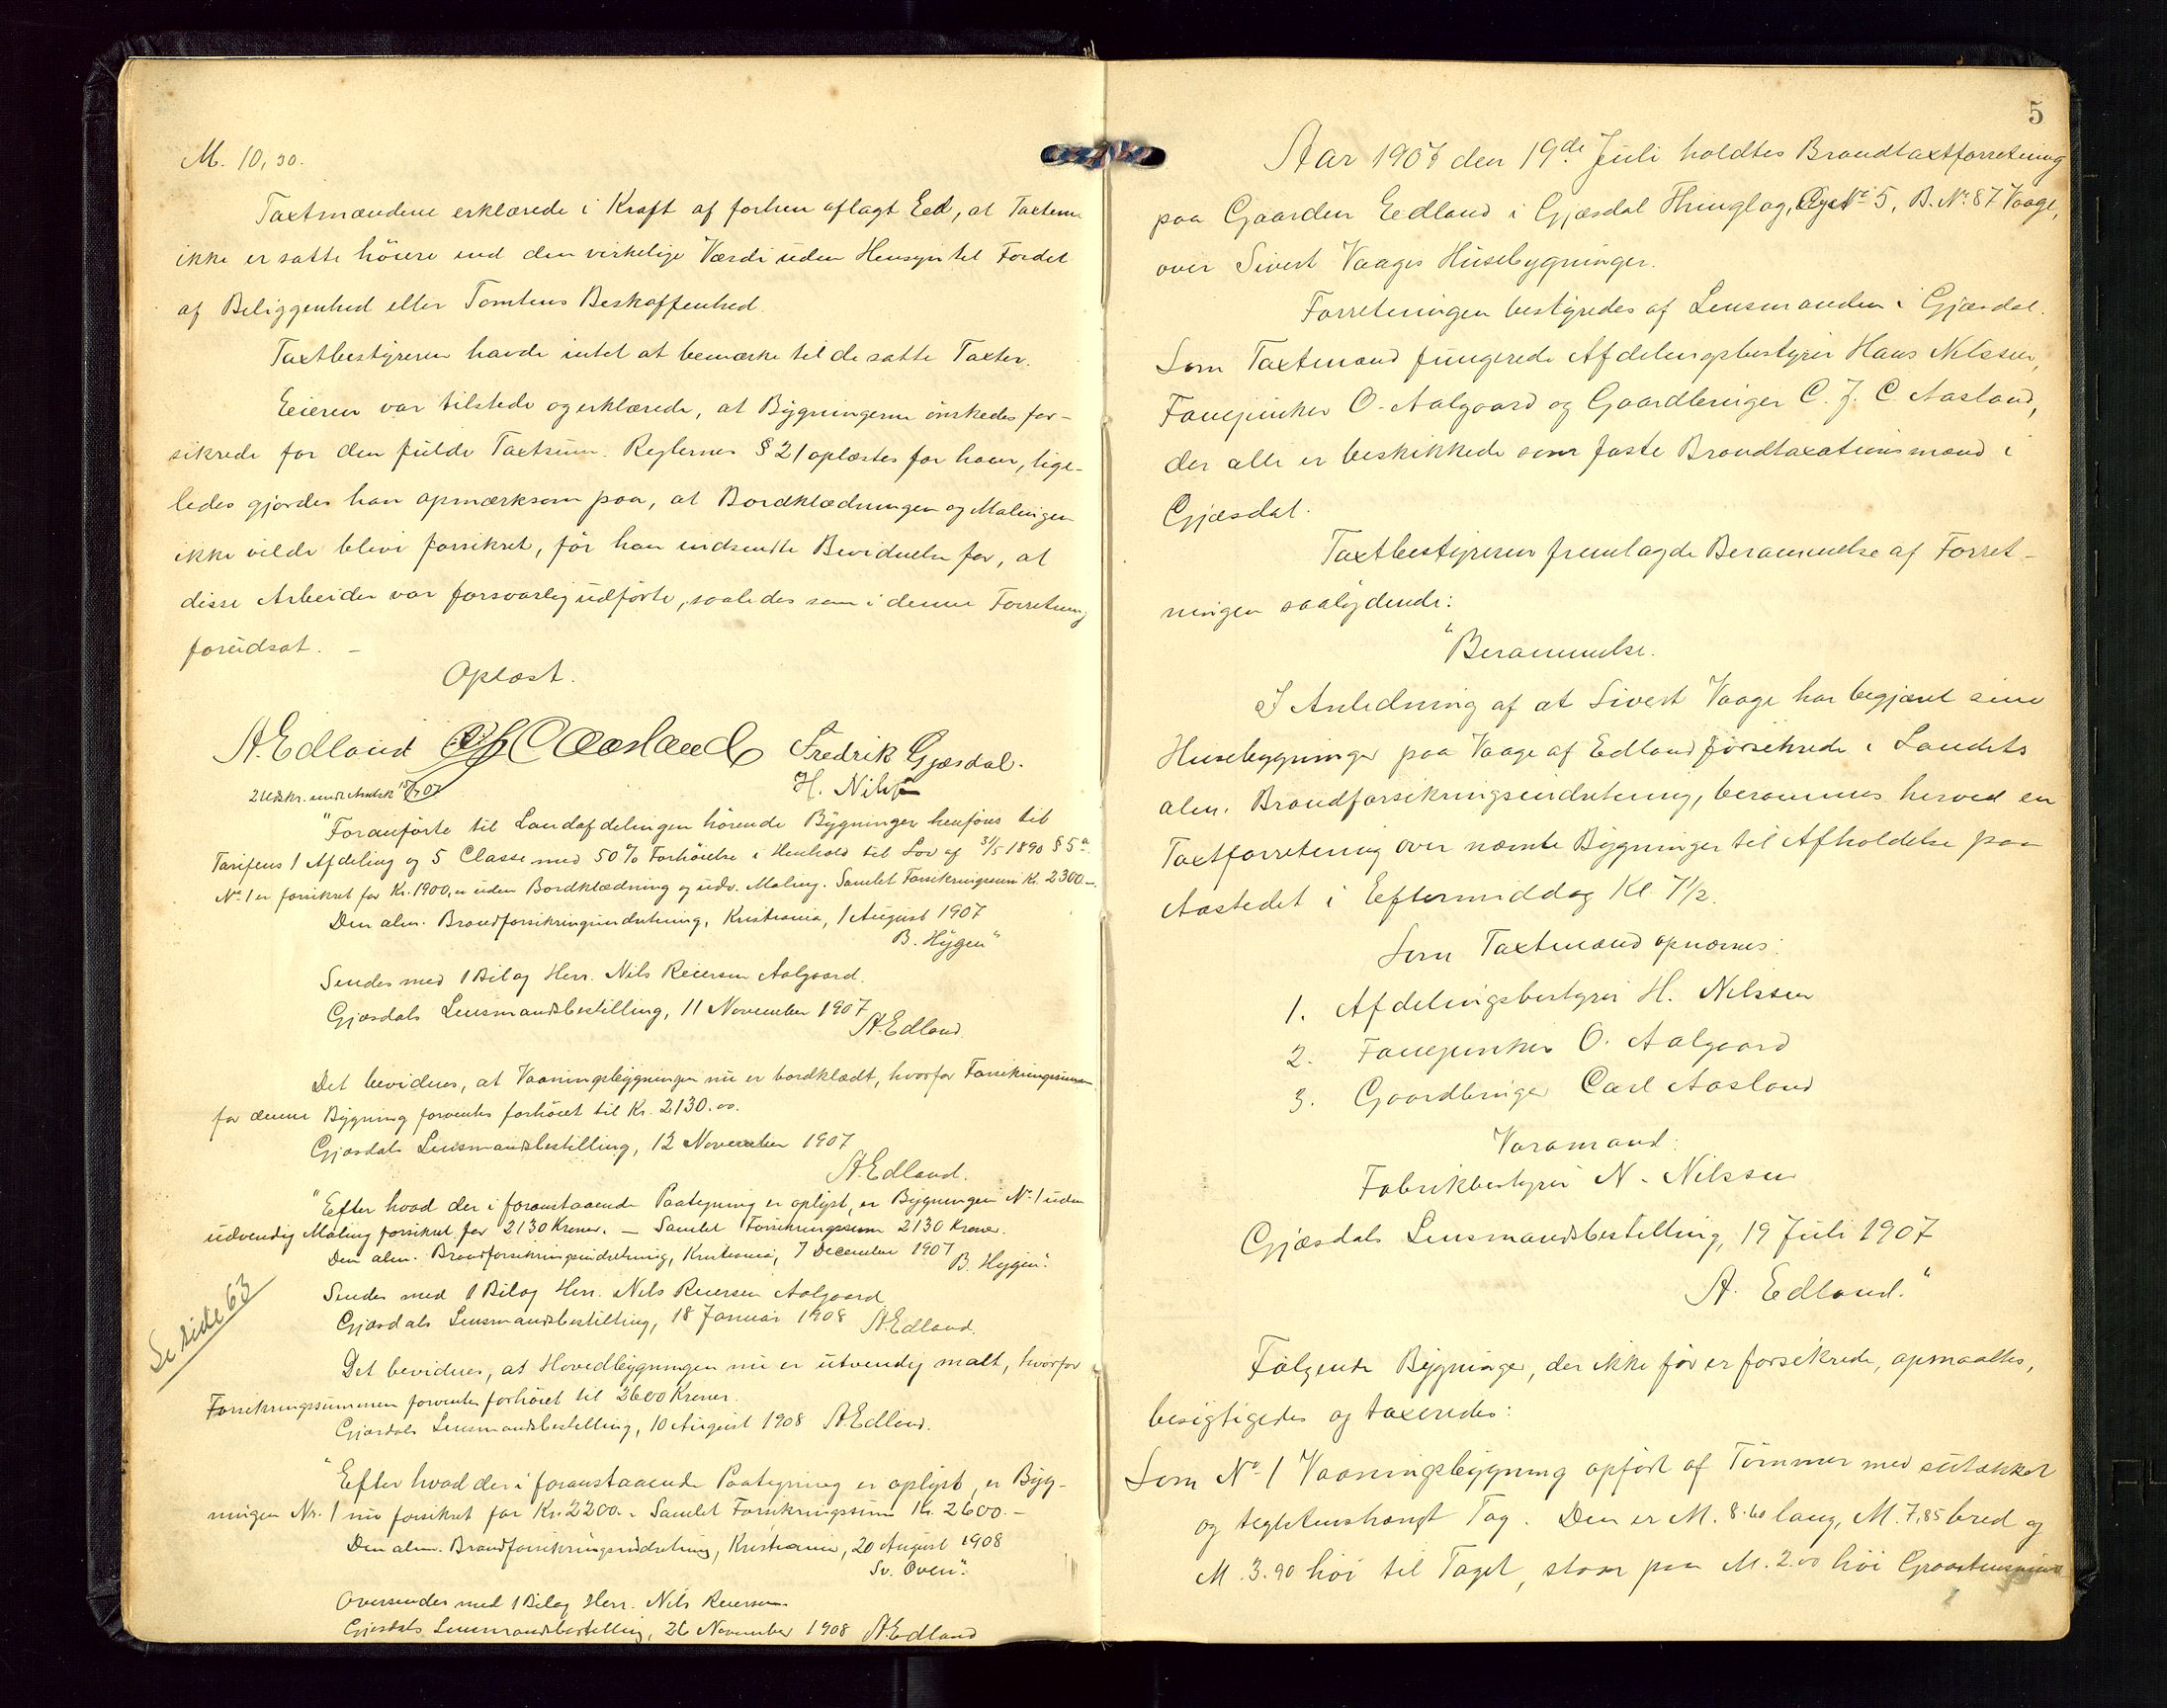 M. 10,30.
Taxtmændene erklærede i Kraft af forhen aflagt Eed, at Taxterne
ikke er satte höiere end den virkelige Værdi uden Hensyn til Fordel
af Beliggenhed eller Tomtens Beskaffenhed.
Taxtbestyreren havde intet at bemærke til de satte Taxter.
Eieren var tilstede og erklærede, at Bygningerne önskedes for-
sikrede for den fulde Taxtsum. Reglernes § 21 oplæstes for ham, lige-
ledes gjordes han opmærksom paa, at Bordklædningen og Malingen
ikke vilde blive forsikret, för han indsendte Bevidnelse for, at
disse Arbeider var forsvarlig udförte, saaledes som i denne Forretning
forudsat. –
Oplæst.
A. Edland C J C Aasland Fredrik Gjæsdal.
H. Nilsen
2 Udskr. sendt Amtsk /7 07
"Foranförte til Landafdelingen hörende Bygninger henföres til
Tarifens 1 Afdeling og 5 Classe med 50% Forhöielse i Henhold til Lov af 31/5 1890 § 5a.
No 1 er forsikret for Kr. 1900, uden Bordklædning og udv. Maling. Samlet Forsikringssum Kr. 2300.–
Den alm. Brandforsikringsindretning, Kristiania, 1 August 1907
B. Hygen"
Sendes med 1 Bilag Herr. Nils Reiersen Aalgaard.
Gjæsdals Lensmandsbestilling, 11 November 1907
A. Edland.
Det bevidnes, at Vaaningsbygningen nu er bordklædt, hvorfor Forsikringssummen
for denne Bygning forventes forhöiet til Kr. 2130.00.
Gjæsdals Lensmandsbestilling, 12 November 1907
A. Edland.
"Efter hvad der i foranstaaende Paategning er oplyst, er Bygningen No 1 uden
udvendig Maling forsikret for 2130 Kroner. – Samlet Forsikringssum 2130 Kroner.
Den alm. Brandforsikringsindretning, Kristiania, 7 December 1907
B. Hygen".
Sendes med 1 Bilag Herr. Nils Reiersen Aalgaard
Gjæsdals Lensmandsbestilling, 18 Januar 1908 A. Edland.
Se side 63
Det bevidnes, at Hovedbygningen nu er utvendig malt, hvorfor
Forsikringssummen forventes forhöiet til 2600 Kroner.
Gjæsdals Lensmandsbestilling, 10 August 1908 A. Edland.
"Efter hvad der i foranstaaende Paategning er oplyst, er Byg-
ningen Nr. 1 nu forsikret for Kr. 2200.– Samlet Forsikringssum Kr. 2600.–
Den alm. Brandforsikringsindretning, Kristiania, 20 August 1908
Sv. Oven".
Oversendes med 1 Bilag Herr. Nils Reiersen
Gjæsdals Lensmandsbestilling, 26 November 1908 A. Edland
5
Aar 1907 den 19de Juli holdtes Brandtaxtforretning
paa Gaarden Eedland i Gjæsdal Thinglag, No 5, B. No 87 Vaage,
over Sivert Vaages Husebygninger.
Forretningen bestyredes af Lensmanden i Gjæsdal.
Som Taxtmænd fungerede Afdelingsbestyrer Hans Nilssen,
Fanejunker O. Aalgaard og Gaardbruger C. J. C. Aasland,
der alle er beskikkede som faste Brandtaxationsmænd i
Gjæsdal.
Taxtbestyreren fremlagde Berammelse af Forret-
ningen saalydende:
"Berammelse.
I Anledning af at Sivert Vaage har begjæret sine
Husebygninger paa Vaage af Edland forsikrede i Landets
alm. Brandforsikringsindretning, berammes herved en
Taxtforretning over nævnte Bygninger til Afholdelse paa
Aastedet i Eftermiddag Kl. 7½.
Som Taxtmænd opnævnes:
1. Afdelingsbestyrer H. Nilssen
2. Fanejunker O. Aalgaard
3. Gaardbruger Carl Aasland
Varamand:
Fabrikbestyrer N. Nilssen
Gjæsdals Lensmandsbestilling, 19 Juli 1907
A. Edland."
Fölgende Bygninger, der ikke för er forsikrede, opmaaltes,
besigtigedes og taxeredes:
Som No 1 Vaaningsbygning opfört af Tömmer med sutækket
og teglstenshængt Tag. Den er M. 8.60 lang, M. 7,85 bred og
M. 3.90 höi til Taget, staar paa M. 2.00 höi Graastensmur